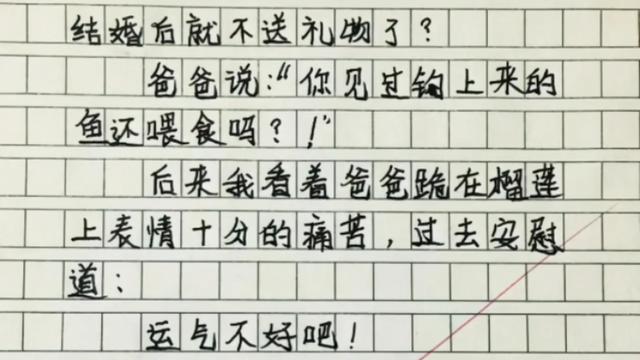 结婚后就不送礼物了?
爸爸说:“你见过钩上来的
鱼还喂食吗?!”
后来我看着爸爸跪在榴莲
上表情十分的痛苦,过去安慰
道:
运气不好吧!